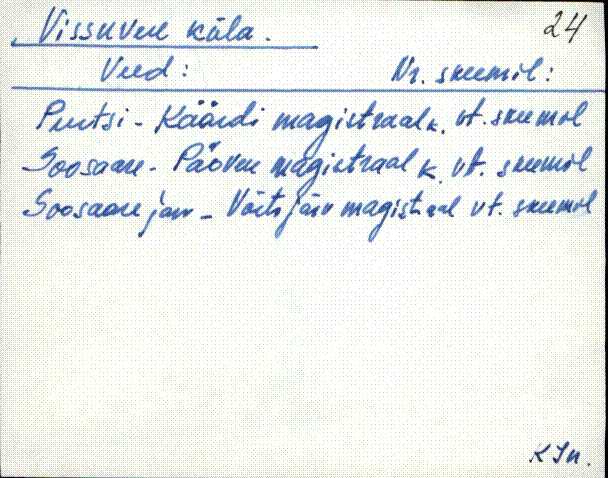 Vissuvere küla. 24
Veed: Nr. skeemil:
Purtsi - Käärdi magistraal k. vt. skeemil
Soosaare - Päovere magistraal k. vt. skeemil
Soosaare järv - Võrtsjärv magistraal vt. skeemil